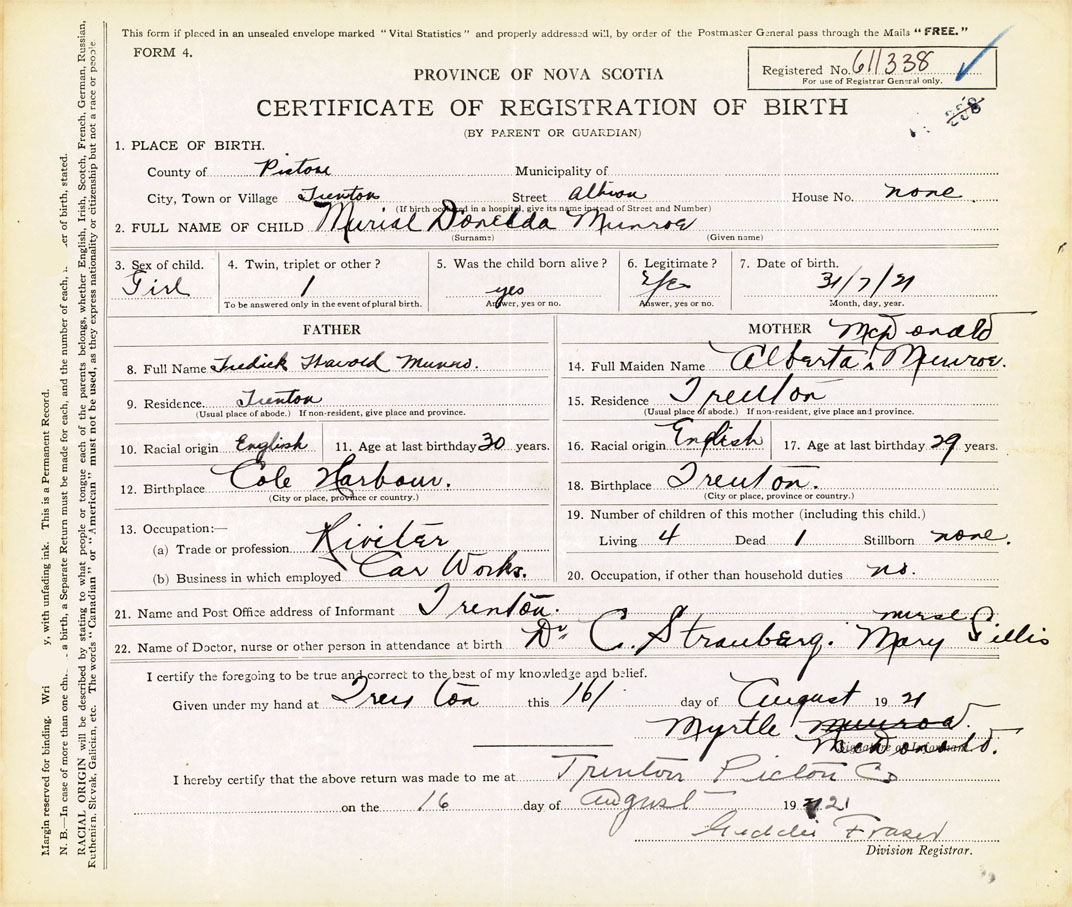 This form if placed in an unsealed envelope marked "Vital Statistics" and properly addressed will, by order of the Postmaster General pass through the Mails "FREE."
FORM 4.
PROVINCE OF NOVA SCOTIA
Registered No. 611338
For use of Registrar General only.
CERTIFICATE OF REGISTRATION OF BIRTH
(BY PARENT OR GUARDIAN)
1. PLACE OF BIRTH.
County of Pictou Municipality of
City, Town or Village Trenton Street Albion House No. none
(If birth occurred in a hospital, give its name instead of Street and Number)
2. FULL NAME OF CHILD Muriel Donelda Munroe
(Surname) (Given name)
3. Sex of child. 4. Twin, triplet or other? 5. Was the child born alive? 6. Legitimate? 7. Date of birth.
Girl 1 yes Yes 31/7/21
To be answered only in the event of plural birth. Answer, yes or no. Answer, yes or no. Month, day, year.
FATHER
8. Full Name Fredick Harold Munro.
9. Residence. Trenton
(Usual place of abode.) If non-resident, give place and province.
10. Racial origin English 11. Age at last birthday 30 years.
12. Birthplace Cole Harbour.
(City or place, province or country.)
13. Occupation:—
(a) Trade or profession Riviter
(b) Business in which employed Car Works.
MOTHER McDonald
14. Full Maiden Name Alberta Munroe.
15. Residence Trenton
(Usual place of abode.) If non-resident, give place and province.
16. Racial origin English 17. Age at last birthday 29 years.
18. Birthplace Trenton.
(City or place, province or country.)
19. Number of children of this mother (including this child.)
Living 4 Dead 1 Stillborn none.
20. Occupation, if other than household duties no.
21. Name and Post Office address of Informant Trenton.
nurse
22. Name of Doctor, nurse or other person in attendance at birth Dr C. Strauberg. Mary Gillis
I certify the foregoing to be true and correct to the best of my knowledge and belief.
Given under my hand at Trenton this 16/ day of August 19 21
Myrtle Munroe.
McDonald.
Signature of Informant.
I hereby certify that the above return was made to me at Trenton Pictou Co
on the 16 day of August 19 21
Geddie Fraser
Division Registrar.
Margin reserved for binding. Wri y, with unfading ink. This is a Permanent Record.
N. B.—In case of more than one chi a birth, a Separate Return must be made for each, and the number of each, er of birth, stated.
RACIAL ORIGIN will be described by stating to what people or tongue each of the parents belongs, whether English, Irish, Scotch, French, German, Russian,
Ruthenian, Slovak, Galician, etc. The words "Canadian" or "American" must not be used, as they express nationality or citizenship but not a race or people